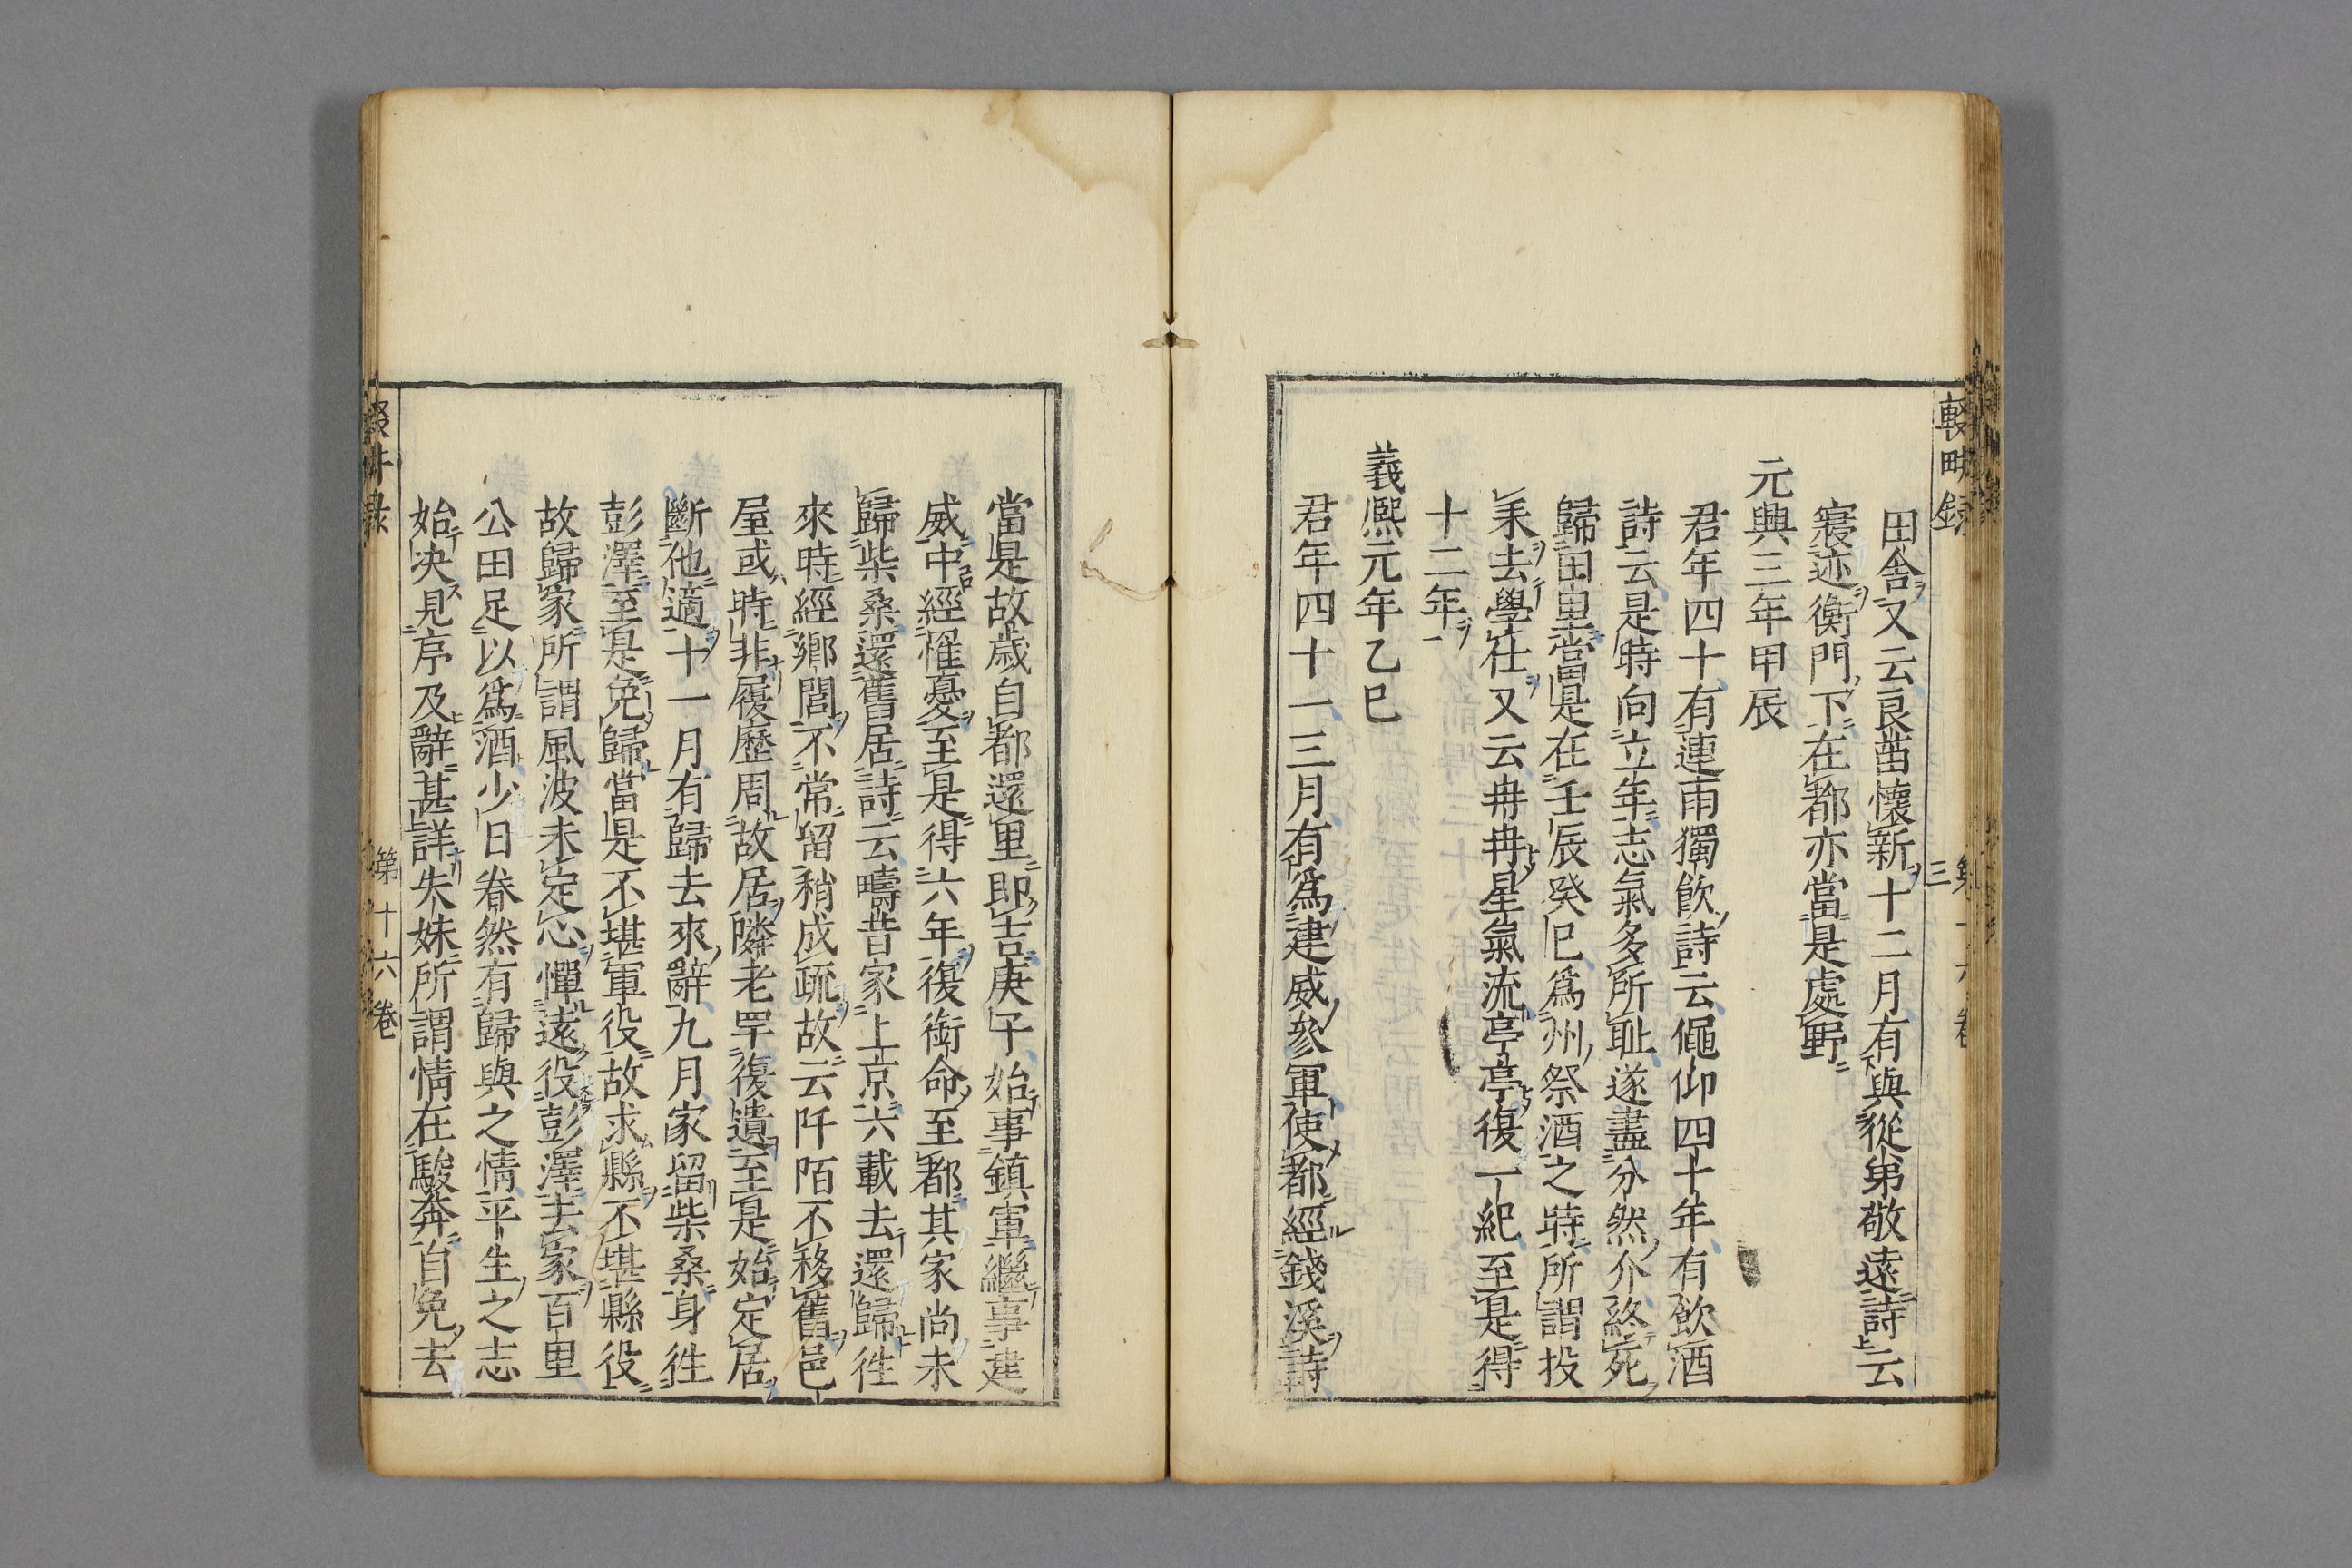 輟畊錄
三
田舎又云良苗懷新十二月有與從弟敬遠詩云
寢迹衡門下在都亦當是處野
元興三年甲辰
君年四十有連雨獨飲詩云僶仰四十年有飲酒
詩云是時向立年志氣多所耻遂盡分然介終死
歸田里當是在壬辰癸巳爲州祭酒之時所謂投
耒去學仕又云冉冉星氣流亭亭復一紀至是得
十二年
義熈元年乙巳
君年四十一三月有爲建威參軍使都經錢溪詩
當是故歳自都還里即吉庚子始事鎮軍繼事建
威中經罹憂至是得六年復銜命至都其家尚未
歸柴桑還舊居詩云疇昔家上京六載去還歸徃
來時經鄉閭不常留稍成疏故云阡陌不移舊邑
屋或時非履歷周故居隣老罕復遺至是始定居
斷他適十一月有歸去來辭九月家留柴桑身徃
彭澤至是免歸當是不堪軍役故求縣不堪縣役
故歸家所謂風波未定心憚遠役彭澤去家百里
公田足以爲酒少日眷然有歸與之情平生之志
始决見序及辭甚詳失妹所謂情在駿奔自免去
第十六卷